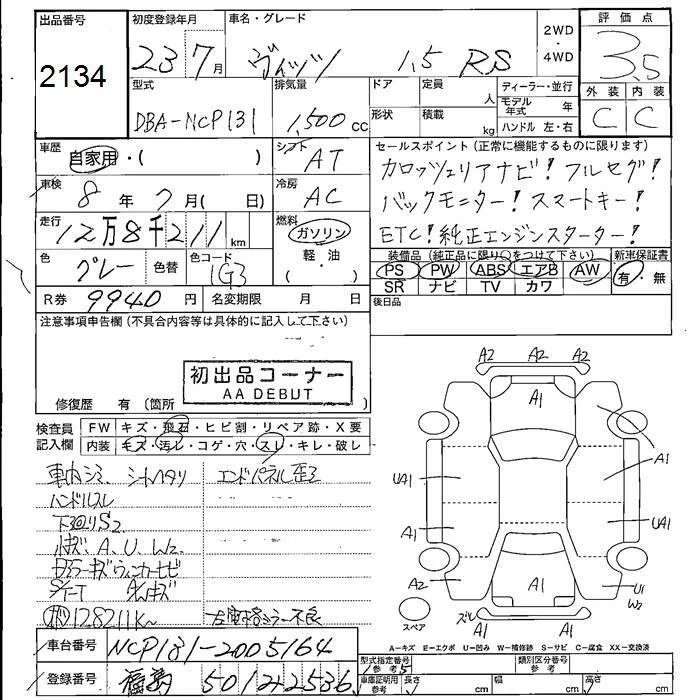 出品番号 初度登録年月 車名・グレード 2WD ・ 4WD 評価点
2134 23 7月 ヴィッツ 1.5 RS 3.5
型式 排気量 ドア 定員 人 ディーラー・並行 外装 内装
DBA-NCP131 1,500cc 形状 積載 kg モデル年式 年 C C
ハンドル 左・右
車歴 自家用・( ) シフト AT セールスポイント(正常に機能するものに限ります)
カロッツェリアナビ! フルセグ!
車検 8年 7月( 日) 冷房 AC バックモニター! スマートキー!
走行 12万8千211km 燃料 ガソリン 軽・油 ( ) ETC! 純正エンジンスターター!
色 グレー 色替 色コード 1G3 装備品(純正品に限り○をつけて下さい) 新車保証書
PS PW ABS エアB AW 有・無
SR ナビ TV カワ
R券 9940円 名変期限 月 日 後日品
注意事項申告欄(不具合内容等は具体的に記入して下さい)
初出品コーナー
AA DEBUT
修復歴 有(箇所
検査員 FW キズ・飛石・ヒビ割・リペア跡・X要
記入欄 内装 キズ・汚レ・コゲ・穴・スレ・キレ・破レ
車内シミ、シートヘタリ エンドパネル歪ミ
ハンドルスレ
下廻りS2
小キズ、A、U、W2
ドアミラーキズウィンカーヒビ
128211K~ 左電格ミラー不良
車台番号 NCP131-2005164
登録番号 福島 501 2 2536
A2 A2 A2
A1
A1
UA1
UA1
A1
A2
A1
U1
W2
スペア
ズレ
A1 A1
A-キズ E-エクボ U-凹み W-補修跡 S-サビ C-腐食 XX-交換済
型式指定番号 類別区分番号
参考 5
車庫証明用 参考 長さ cm 幅 cm 高さ cm